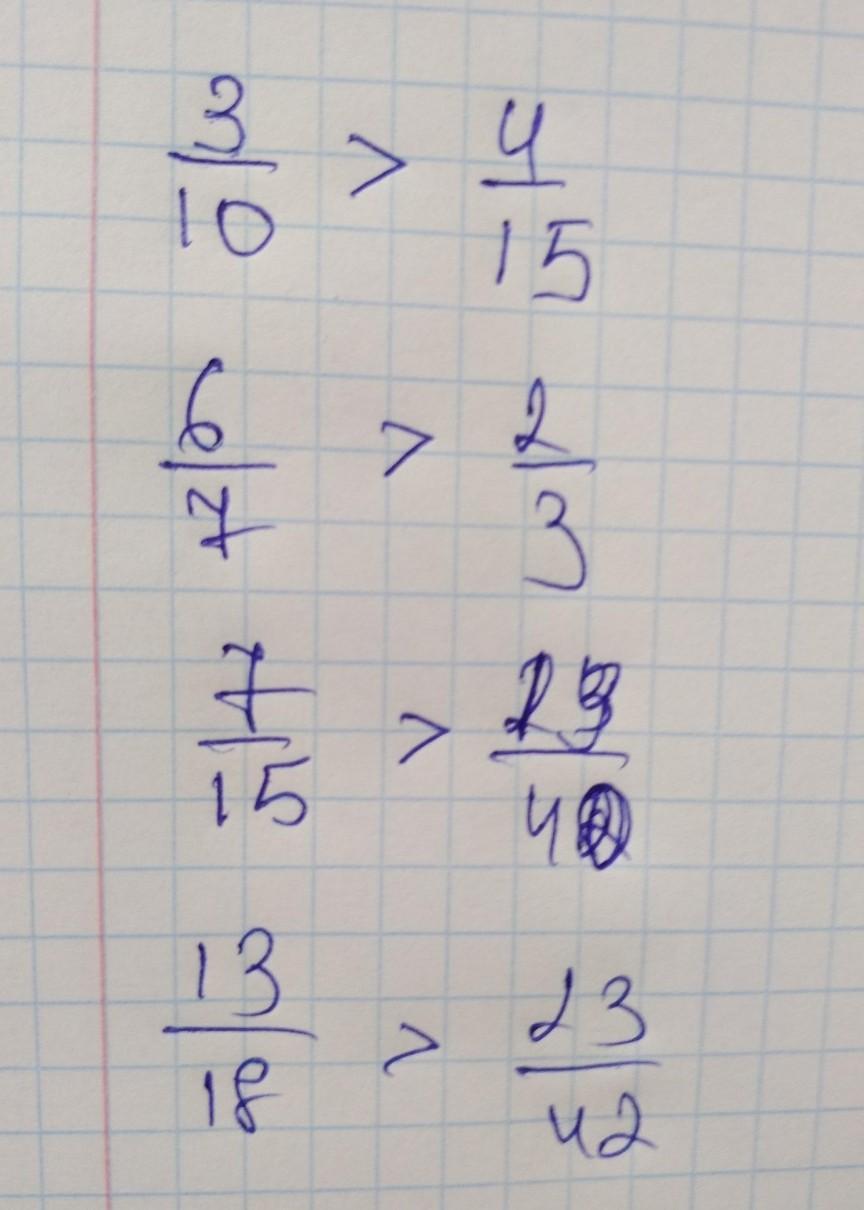 3/10 > 4/15
6/7 > 2/3
7/15 >
13/18 > 23/42